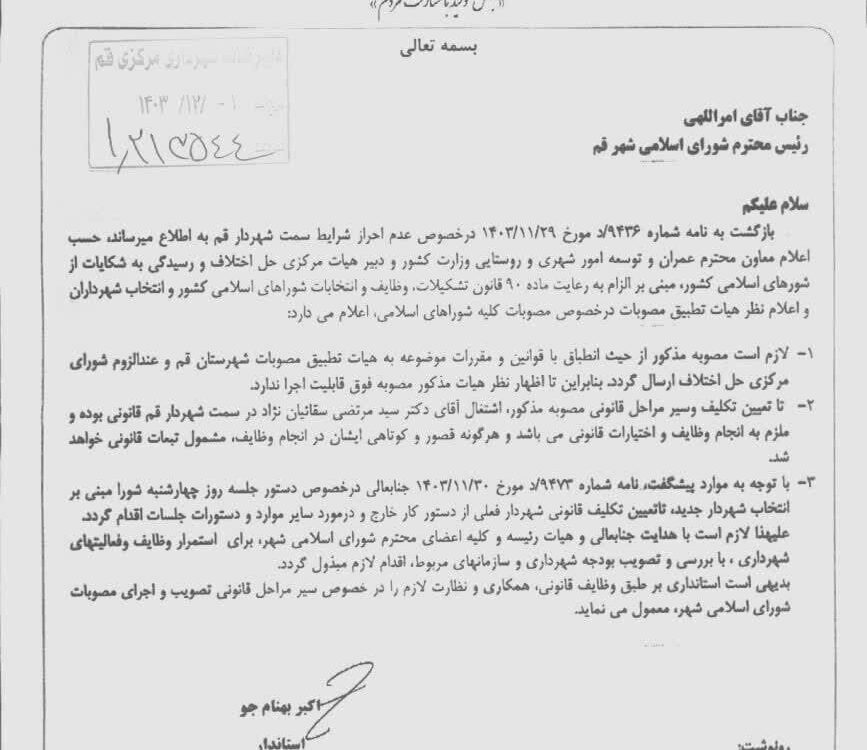 بسمه تعالی
مرکزی قم
۱۴۰۳/۱۲/۰۱
جناب آقای امراللهی
رئیس محترم شورای اسلامی شهر قم
سلام علیکم
بازگشت به نامه شماره ۹۴۳۶/د مورخ ۱۴۰۳/۱۱/۲۹ درخصوص عدم احراز شرایط سمت شهردار قم به اطلاع میرساند، حسب
اعلام معاون محترم عمران و توسعه امور شهری و روستایی وزارت کشور و دبیر هیات مرکزی حل اختلاف و رسیدگی به شکایات از
شورهای اسلامی کشور، مبنی بر الزام به رعایت ماده ۹۰ قانون تشکیلات، وظایف و انتخابات شوراهای اسلامی کشور و انتخاب شهرداران
و اعلام نظر هیات تطبیق مصوبات درخصوص مصوبات کلیه شوراهای اسلامی، اعلام می دارد:
۱- لازم است مصوبه مذکور از حیث انطباق با قوانین و مقررات موضوعه به هیات تطبیق مصوبات شهرستان قم و عندالزوم شورای
مرکزی حل اختلاف ارسال گردد. بنابراین تا اظهار نظر هیات مذکور مصوبه فوق قابلیت اجرا ندارد.
۲- تا تعیین تکلیف وسیر مراحل قانونی مصوبه مذکور، اشتغال آقای دکتر سید مرتضی سقائیان نژاد در سمت شهردار قم قانونی بوده و
ملزم به انجام وظایف و اختیارات قانونی می باشد و هرگونه قصور و کوتاهی ایشان در انجام وظایف، مشمول تبعات قانونی خواهد
شد.
۳- با توجه به موارد پیشگفت، نامه شماره ۹۴۷۳/د مورخ ۱۴۰۳/۱۱/۳۰ جنابعالی درخصوص دستور جلسه روز چهارشنبه شورا مبنی بر
انتخاب شهردار جدید، تاتعیین تکلیف قانونی شهردار فعلی از دستور کار خارج و درمورد سایر موارد و دستورات جلسات اقدام گردد.
علیهذا لازم است با هدایت جنابعالی و هیات رئیسه و کلیه اعضای محترم شورای اسلامی شهر، برای استمرار وظایف وفعالیتهای
شهرداری ، با بررسی و تصویب بودجه شهرداری و سازمانهای مربوط، اقدام لازم مبذول گردد.
بدیهی است استانداری بر طبق وظایف قانونی، همکاری و نظارت لازم را در خصوص سیر مراحل قانونی تصویب و اجرای مصوبات
شورای اسلامی شهر، معمول می نماید.
اکبر بهنام جو
استاندار
رونوشت: